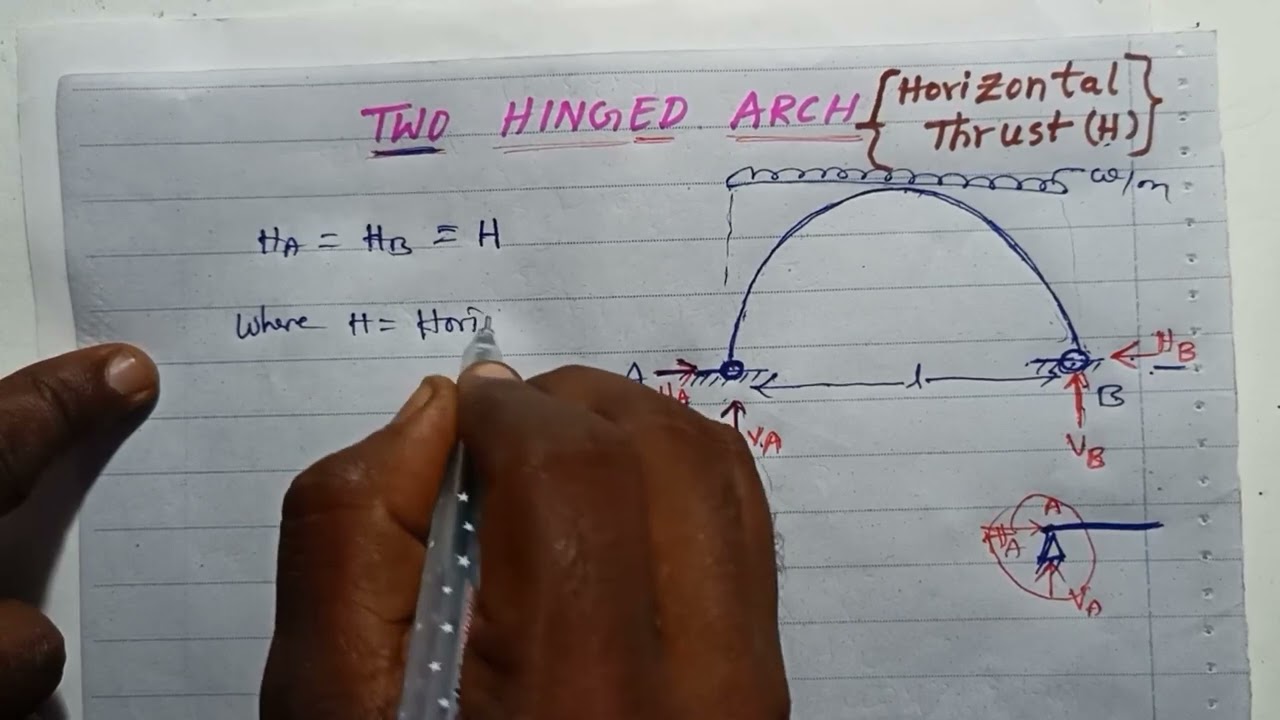 TWO HINGED ARCH {Horizontal
Thrust (H)}
ω/m
HA = HB = H
Where H = Hori
A
HA
VA
l
HB
B
VB
A
HA
VA